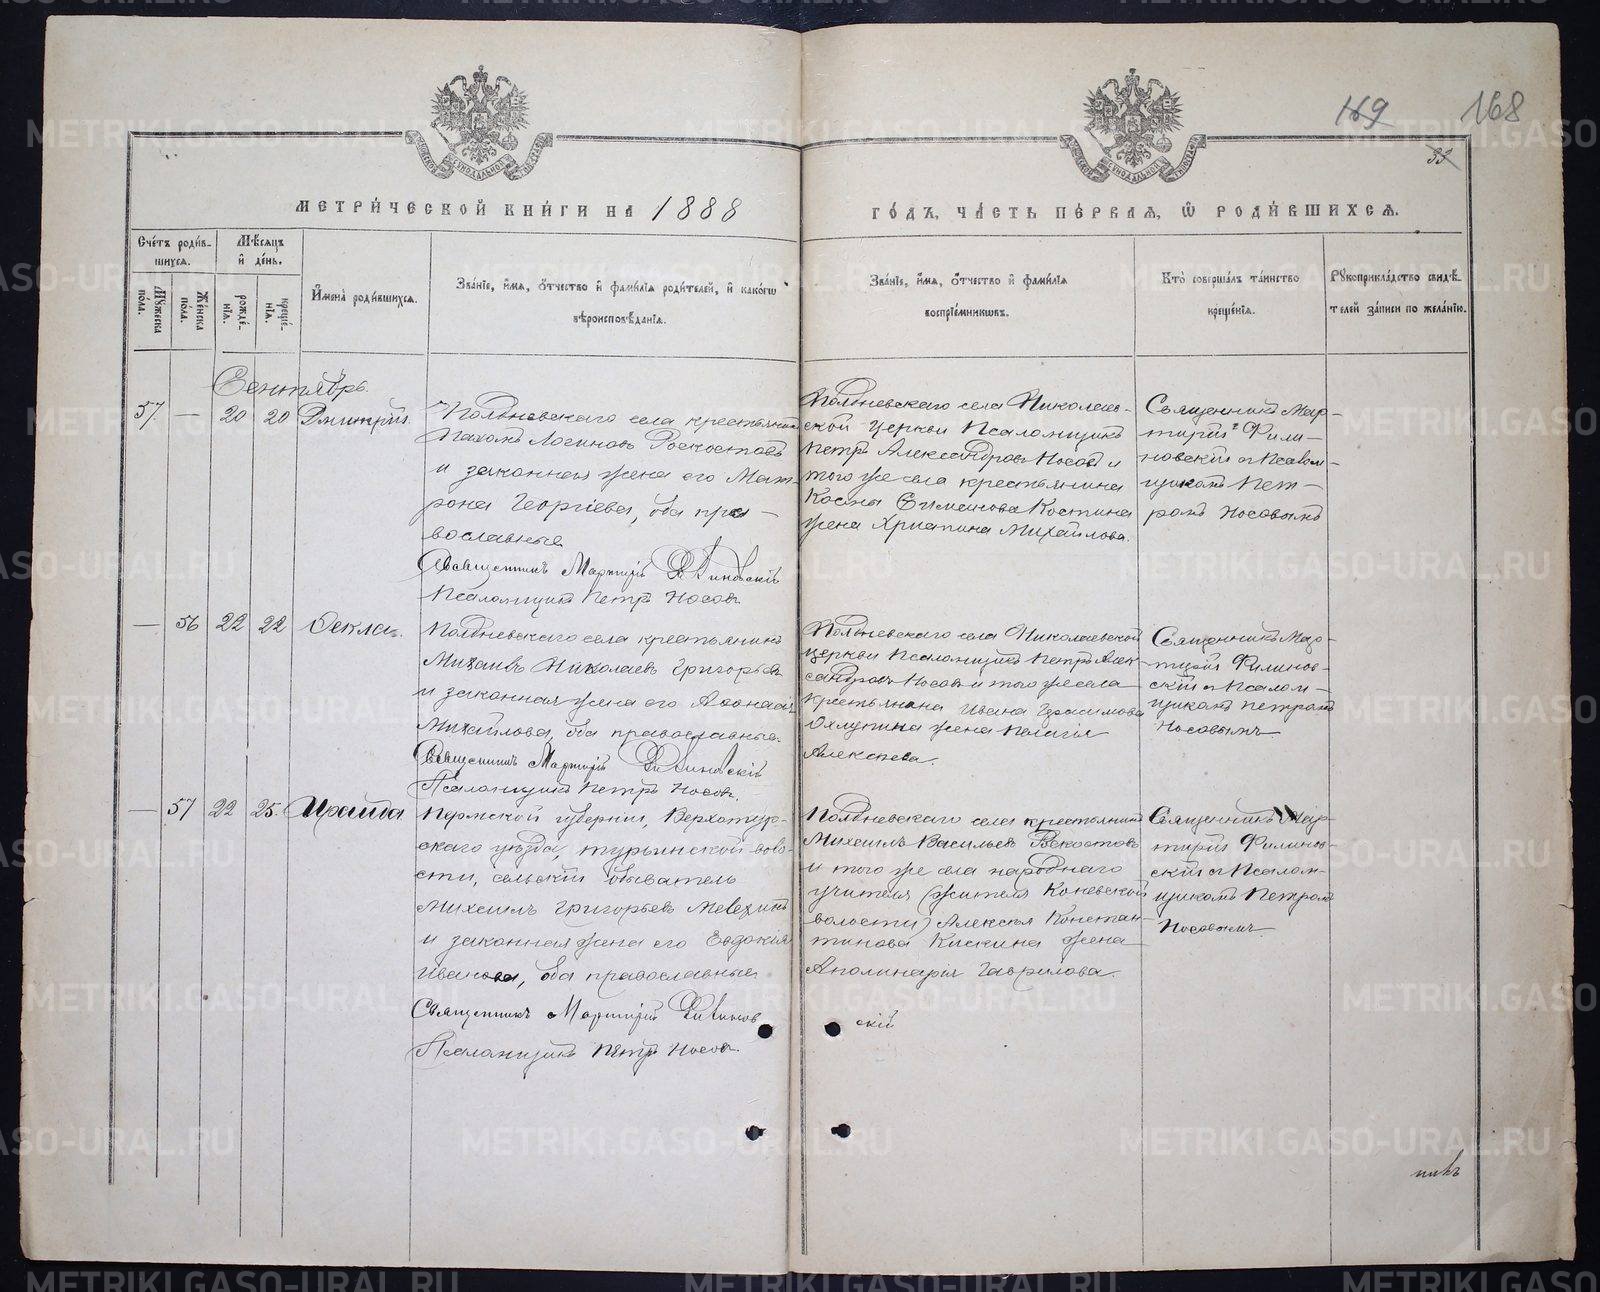 169 168
33
МЕТРИЧЕСКОЙ КНИГИ НА 1888
ГОДЪ, ЧАСТЬ ПЕРВАЯ, Ѡ РОДИВШИХСЯ.
Счетъ родив-
шихся.
Мѣсяцъ
и день.
Мужеска
пола.
Женска
пола.
рожде-
нія.
креще-
нія.
Имена родившихся.
Званіе, имя, отчество и фамилія родителей, и какогѡ
вѣроисповѣданія.
Званіе, имя, отчество и фамилія
воспріемникѡвъ.
Кто совершалъ таинство
крещенія.
Рукоприкладство свидѣ-
телей записи по желанію.
Сентябрь.
57. — 20 20 Димитрій.
Полдневскаго села крестьянинъ
Пахомъ Логиновъ Роскостовъ
и законная жена его Мат-
рона Георгіева, оба пра-
вославные
Священникъ Мартирій Филиновскій
Псаломщикъ Петръ Носовъ.
Полдневскаго села Николаев-
ской церкви Псаломщикъ
Петръ Александровъ Носовъ и
того же села крестьянина
Косьмы Симеонова Костина
жена Христина Михайлова.
Священникъ Мар-
тирій Фили-
новскій съ Псалом-
щикомъ Пет-
ромъ Носовымъ
— 56 22 22 Ѳекла.
Полдневскаго села крестьянинъ
Михаилъ Николаевъ Григорьевъ
и законная жена его Аѳонасія
Михайлова, оба православные.
Священникъ Мартирій Филиновскій
Псаломщикъ Петръ Носовъ.
Полдневскаго села Николаевской
церкви Псаломщикъ Петръ Алек-
сандровъ Носовъ и того же села
крестьянина Ивана Герасимова
жена Пелагія
Алексѣева.
Священникъ Мар-
тирій Филинов-
скій съ Псалом-
щикомъ Петромъ
Носовымъ
— 57 22 25. Ираида
Пермской губерніи, Верхотур-
скаго уѣзда, Турьинской воло-
сти, сельскій обыватель
Михаилъ Григорьевъ
и законная жена его Евдокія
Иванова, оба православные
Священникъ Мартирій Филинов
скій
Псаломщикъ Петръ Носовъ.
Полдневскаго села крестьянинъ
Михаилъ Васильевъ Роскостовъ
и того же села народнаго
учителя (жителя Коневской
волости) Алексѣя Констан-
тинова Кискина жена
Аполинарія Гаврилова.
Священникъ Мар-
тирій Филинов-
скій съ Псалом-
щикомъ Петромъ
Носовымъ
METRIKI.GASO-URAL.RU